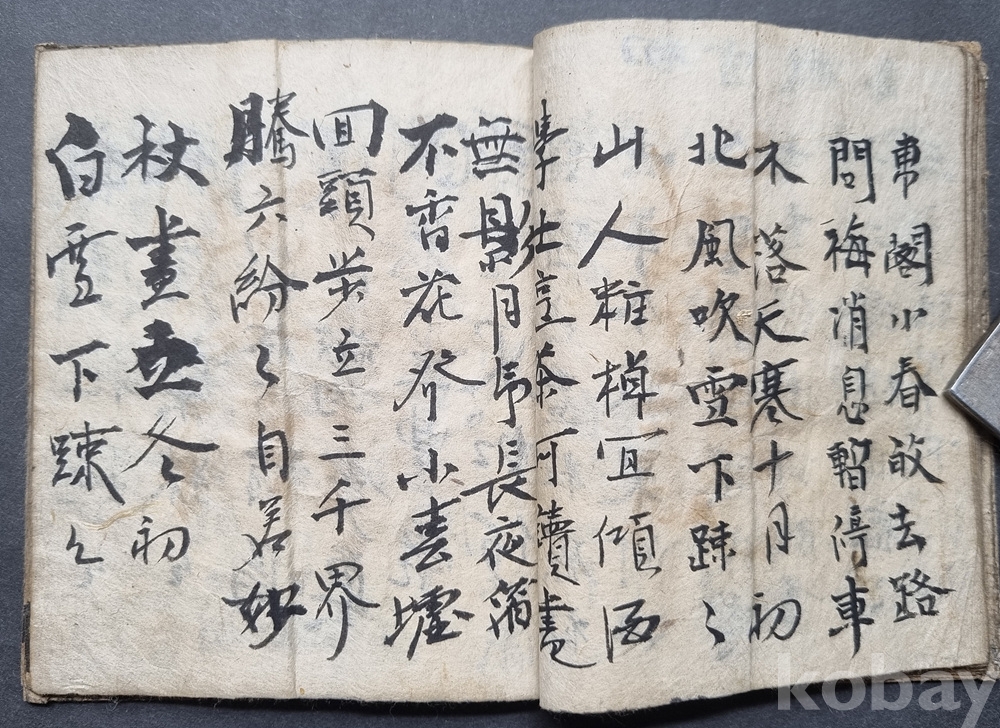 東閣小春去路
問梅消息暫停車
木落天寒十月初
北風吹雪下踈〻
山人粧宜傾酒
學士烹茶可讀書
無影月吊長夜
不香花發小春墟
回頭立三千界
騰六紛〻自若
杖立冬初
白雪下踈〻
kobay